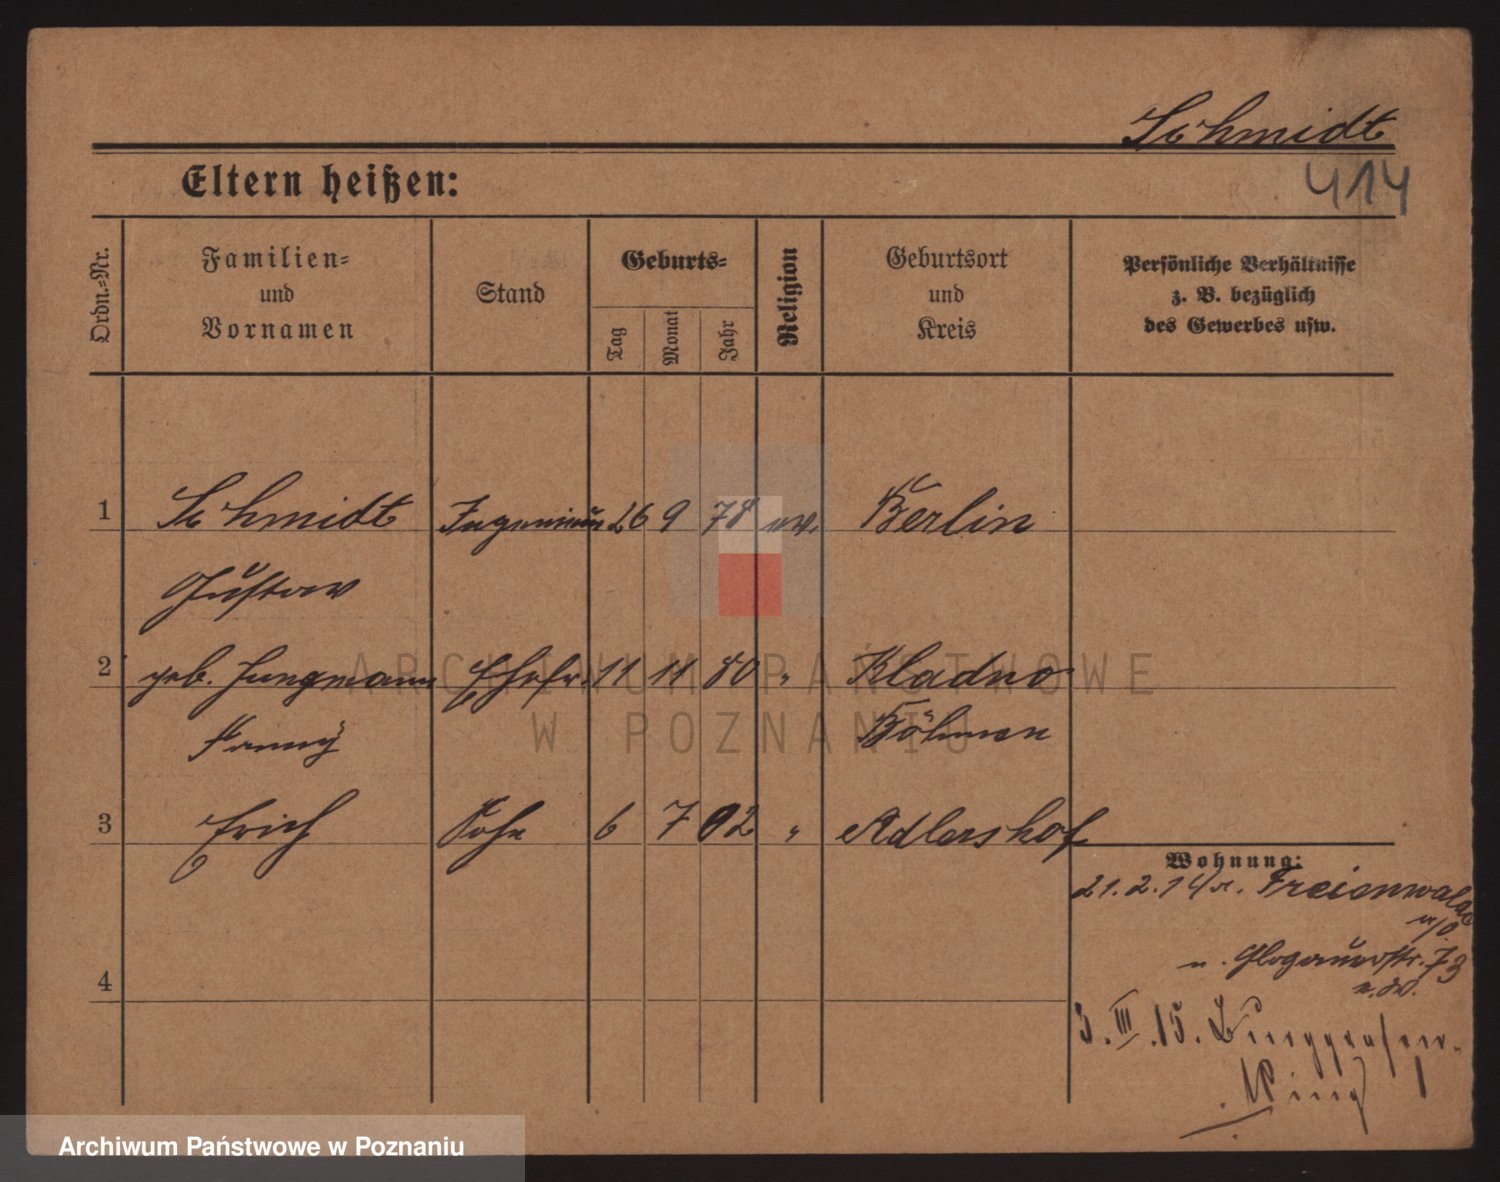 Schmidt
414
Eltern heißen:
Ordn.=Nr.
Familien=
und
Vornamen
Stand
Geburts=
Tag
Monat
Jahr
Religion
Geburtsort
und
Kreis
Persönliche Verhältnisse
z. B. bezüglich
des Gewerbes usw.
1 Schmidt Ingenieur 26 9 78 ev. Berlin
Gustav
2 geb. Jungmann Ehefr. 11 11 80 " Kladno
Fanny Böhmen
3 Erich Sohn 6 7 02 " Adlershof
Wohnung:
21.2.14 Freienwalde
a/O.
n. Glogauerstr. 73
4
3.III.15. Burggrafen-
Ring
ARCHIWUM PAŃSTWOWE
W POZNANIU
Archiwum Państwowe w Poznaniu